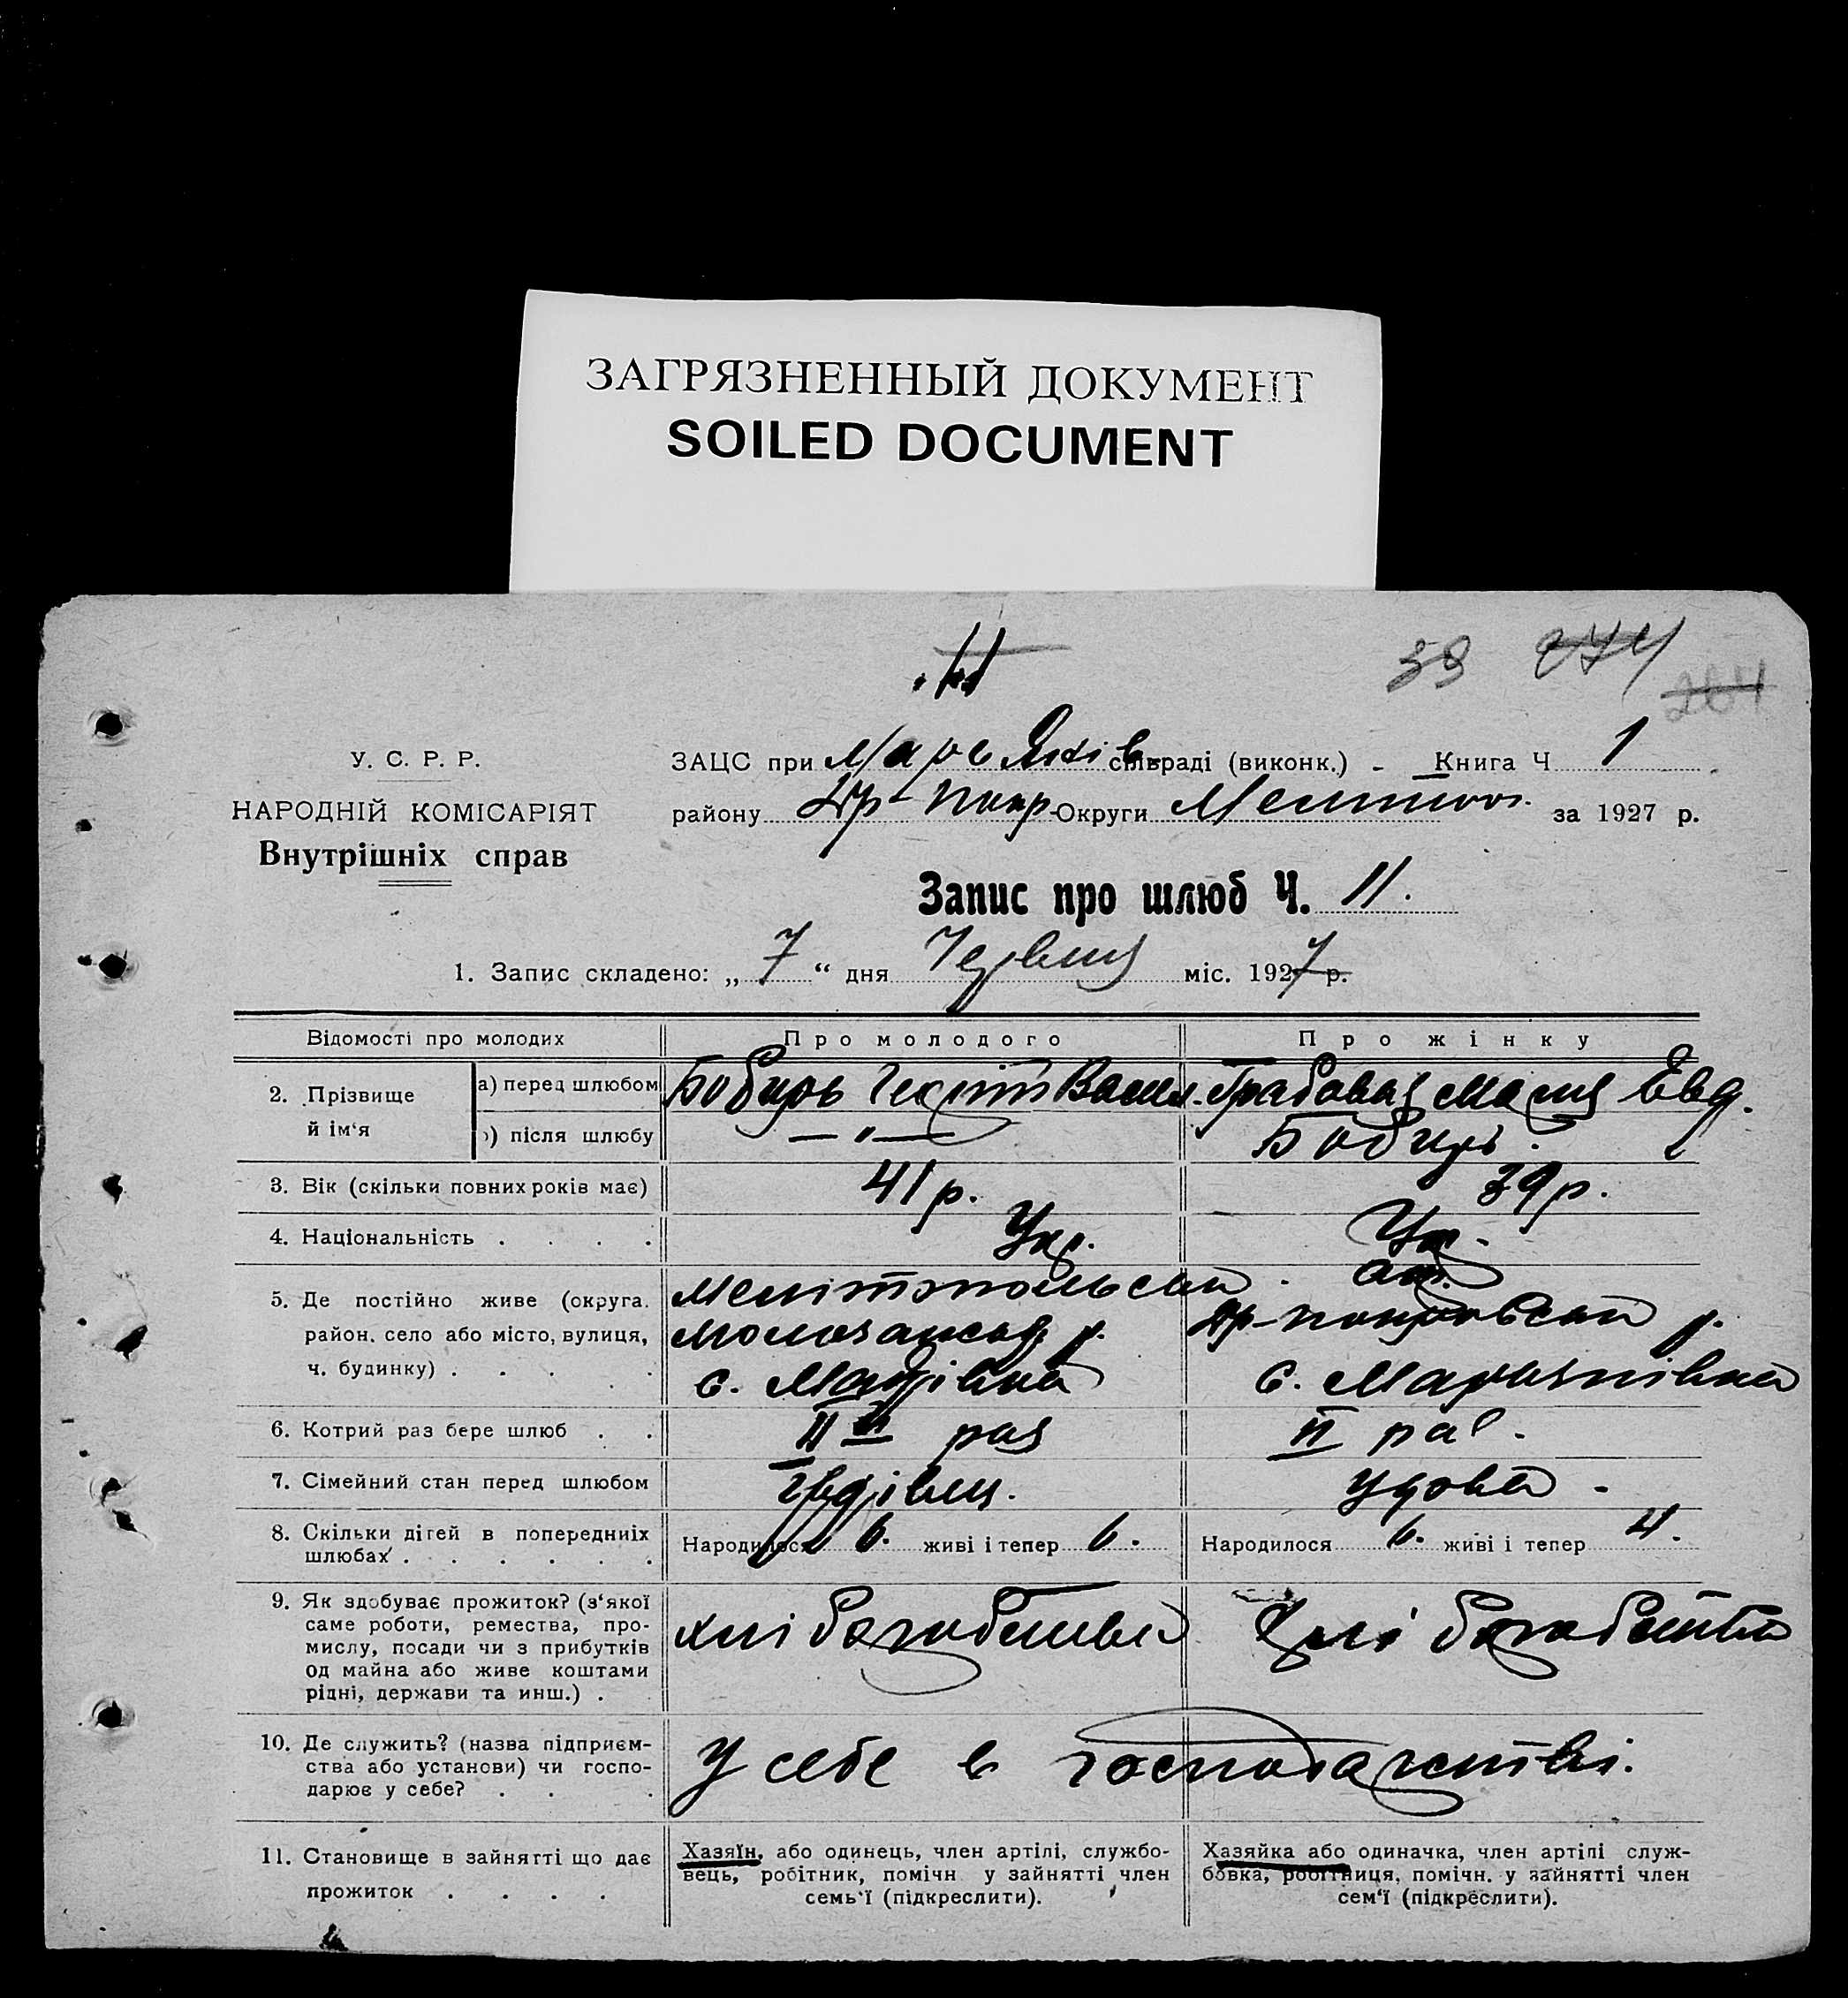 ЗАГРЯЗНЕННЫЙ ДОКУМЕНТ
SOILED DOCUMENT
39 274
264
У. С. Р. Р.
НАРОДНІЙ КОМІСАРІЯТ
Внутрішніх справ
ЗАЦС при сільраді (виконк.) - Книга Ч 1
району Округи за 1927 р.
Запис про шлюб Ч. 11.
1. Запис складено: „ 7 “ дня Червня міс. 1927 р.
Відомості про молодих Про молодого Про жінку
2. Прізвище й ім‘я
а) перед шлюбом Бобирь Васил. Грабовая Мария Евд.
) після шлюбу — " — Бобирь.
3. Вік (скільки повних років має) 41 р. 39 р.
4. Національність . . . . Укр. Укр.
5. Де постійно живе (округа, район, село або місто, вулиця, ч. будинку) . . . .
Мелітопольськ
р. р.
с. с. Марянівка
6. Котрий раз бере шлюб . . II раз II раз.
7. Сімейний стан перед шлюбом удова.
8. Скільки дітей в попередниіх шлюбах . . . . . .
Народилося 6. живі і тепер 6. Народилося 6. живі і тепер 4.
9. Як здобуває прожиток? (з‘якої саме роботи, ремества, про-
мислу, посади чи з прибутків
од майна або живе коштами
рідні, держави та инш.) .
10. Де служить? (назва підприєм-
ства або установи) чи госпо-
дарює у себе? . . .
У себе в господарстві.
11. Становище в зайнятті що дає
прожиток . . . .
Хазяїн, або одинець, член артілі, службо-
вець, робітник, помічн у зайнятті член
семь‘ї (підкреслити).
Хазяйка або одиначка, член артілі служ-
бовка, робітниця, помічн. у зайнятті член
сем‘ї (підкреслити).